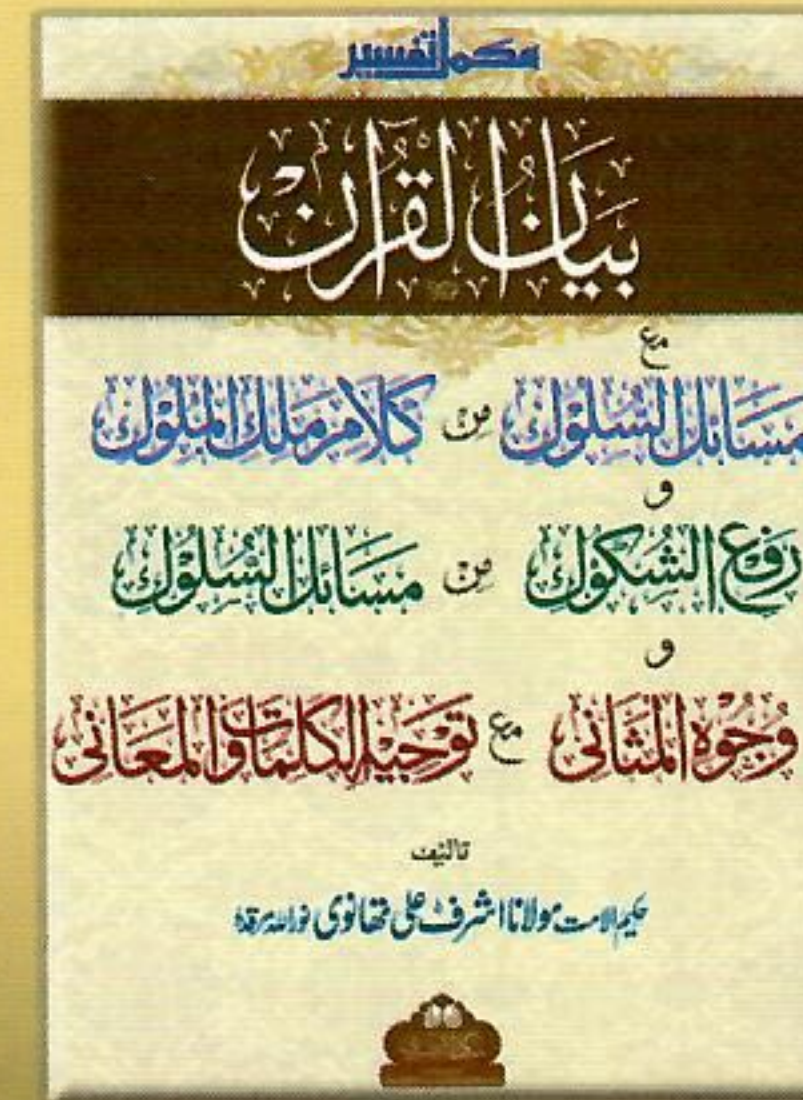 مکمل تفسیر
بَيَانُ الْقُرْآن
مع
مَسَائِلُ السُّلُوك مِن كَلَامِ مَلِكِ الْمُلُوك
و
رَفْعُ الشُّكُوك مِن مَسَائِلِ السُّلُوك
و
وُجُوهُ الْمَثَانِی مع تَوْجِيهِ الْكَلِمَاتِ وَالْمَعَانِی
تالیف
حکیم الامت مولانا اشرف علی تھانوی نور اللہ مرقدہ